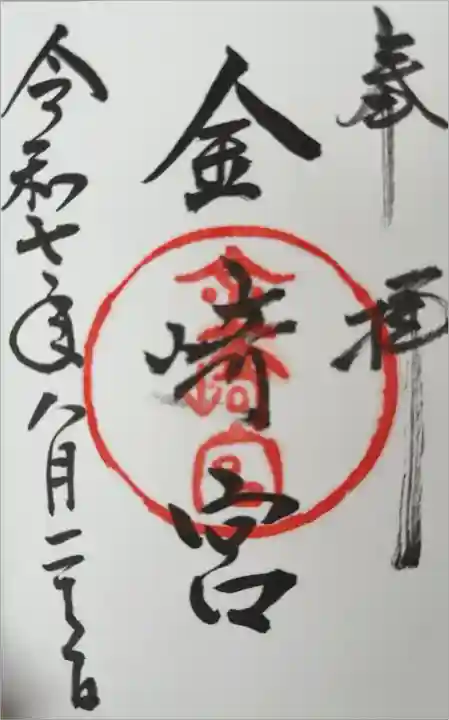 奉拝
金崎宮
金崎宮
令和七年八月二十日